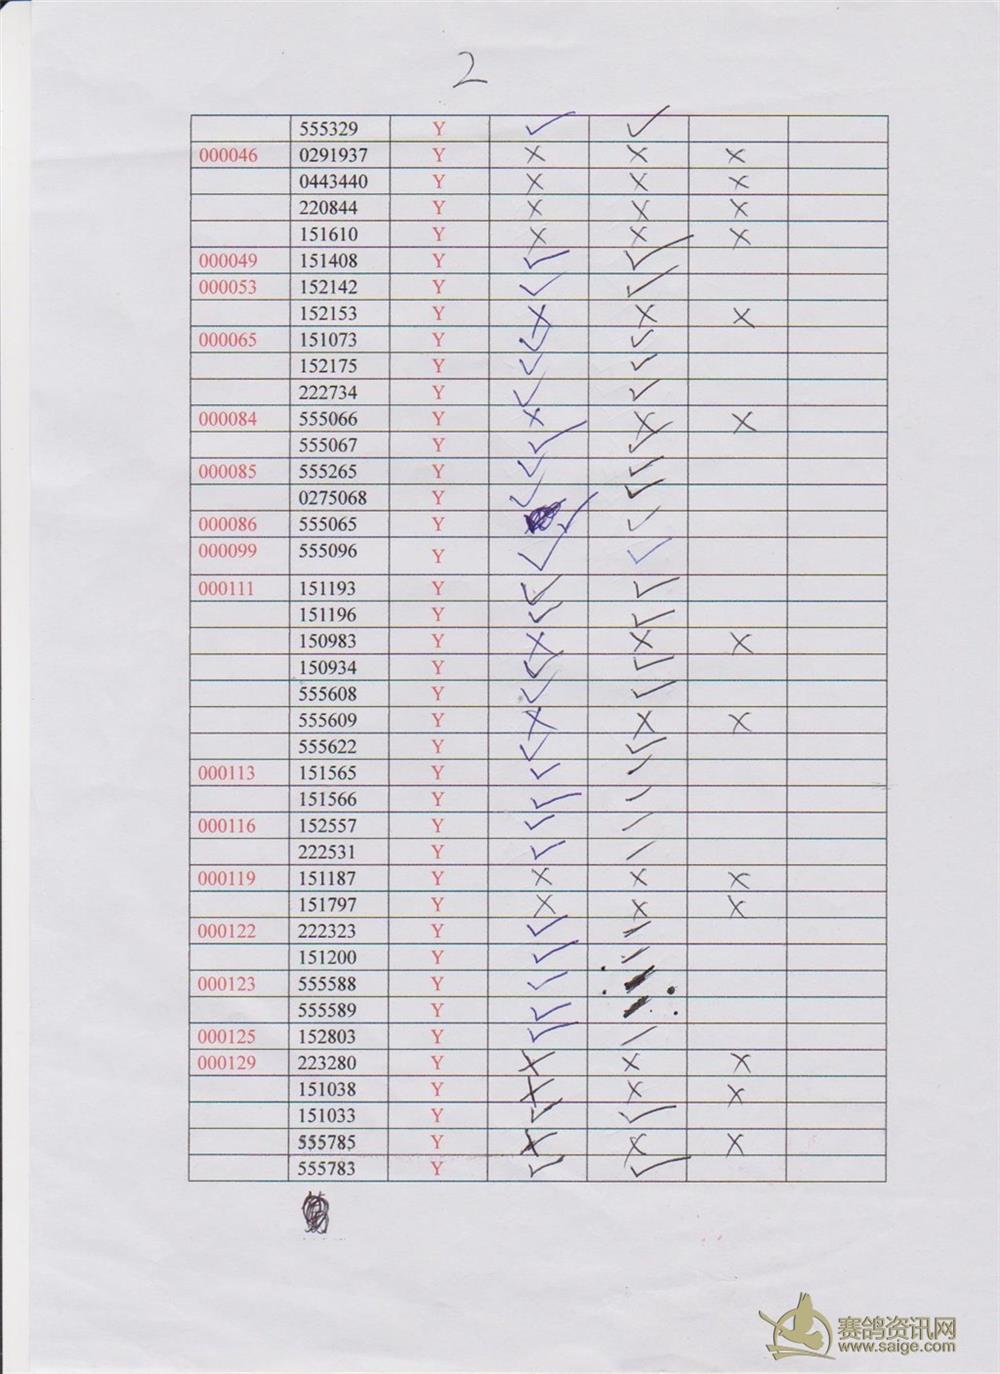 2
555329 Y ✓ ✓
000046 0291937 Y × × ×
0443440 Y × × ×
220844 Y × × ×
151610 Y × × ×
000049 151408 Y ✓ ✓
000053 152142 Y ✓ ✓
152153 Y × × ×
000065 151073 Y ✓ ✓
152175 Y ✓ ✓
222734 Y ✓ ✓
000084 555066 Y × × ×
555067 Y ✓ ✓
000085 555265 Y ✓ ✓
0275068 Y ✓ ✓
000086 555065 Y ✓ ✓
000099 555096 Y ✓ ✓
000111 151193 Y ✓ ✓
151196 Y ✓ ✓
150983 Y × × ×
150934 Y ✓ ✓
555608 Y ✓ ✓
555609 Y × × ×
555622 Y ✓ ✓
000113 151565 Y ✓ ✓
151566 Y ✓ ✓
000116 152557 Y ✓ /
222531 Y ✓ /
000119 151187 Y × × ×
151797 Y × × ×
000122 222323 Y ✓ /
151200 Y ✓ /
000123 555588 Y ✓ /
555589 Y ✓ /
000125 152803 Y ✓ /
000129 223280 Y × × ×
151038 Y × × ×
151033 Y ✓ ✓
555785 Y × × ×
555783 Y ✓ ✓
赛鸽资讯网
www.saige.com